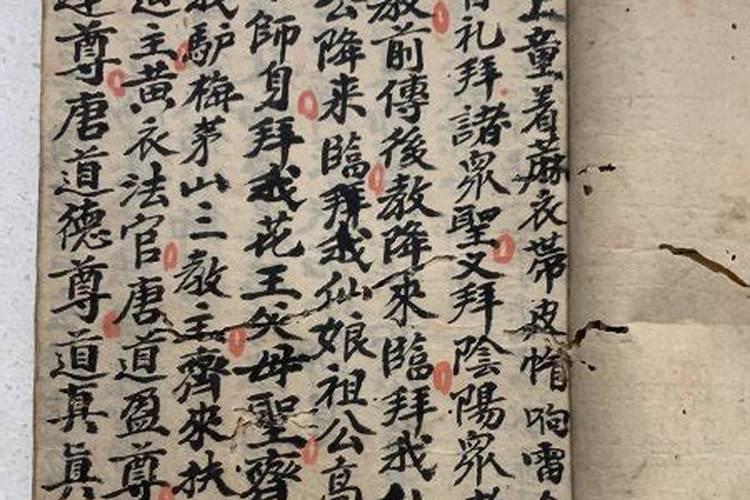 上童着蔴衣帶皮帽响雷
礼拜諸眾聖又拜陰陽眾
教前傳後教降來臨拜我仙
公降来臨拜我仙娘祖公高
師身拜我花王父母聖齊
我馿梅茅山三教主齊來扶
主黃衣法官唐道盈尊
連尊唐道德尊道真真